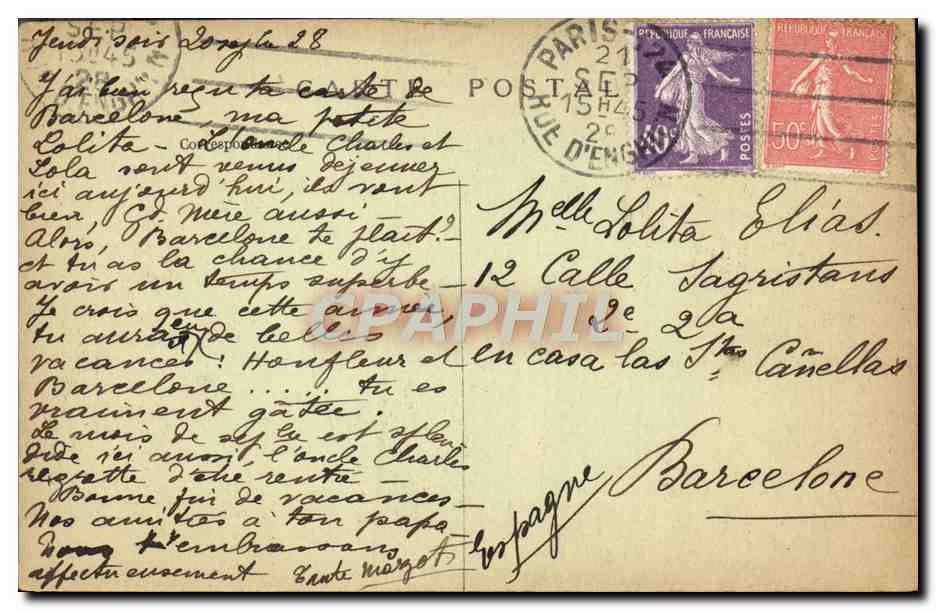 Jeudi soir 20 sept 28
J'ai bien reçu ta carte de
Barcelone, ma petite
Lolita - L'oncle Charles et
Lola sont venus déjeuner
ici aujourd'hui, ils vont
bien, Gd. Mère aussi
Alors, Barcelone te plait ? -
et tu as la chance d'y
avoir un temps superbe -
Je crois que cette année,
tu auras eu de belles
vacances ! Honfleur et
Barcelone ..... tu es
vraiment gâtée.
Le mois de sept est splen
dide ici aussi, l'oncle Charles
regrette d'être rentré -
Bonne fin de vacances -
Nos amitiés à ton papa
t'embrassons
affectueusement Tante Margot
CARTE POSTALE
Correspondance
PARIS
21
SEP
15H45
RUE D'ENGHIEN
RÉPUBLIQUE FRANÇAISE
POSTES
RÉPUBLIQUE FRANÇAISE
50c
Melle Lolita Elías.
12 Calle Sagristans
2e 2a
en casa las Stas Cañellas
Barcelone
Espagne
CPAPHIL